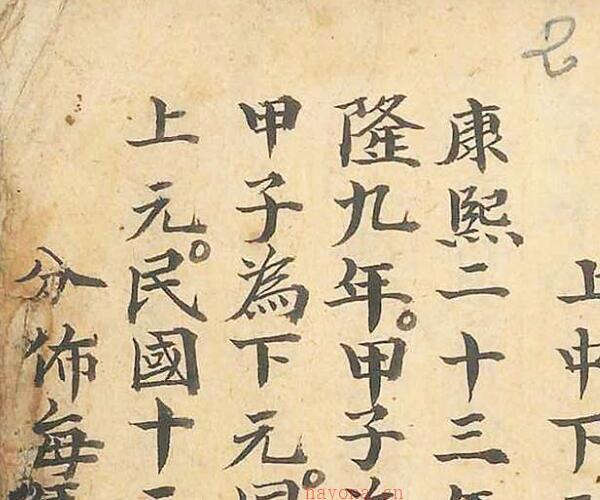 上中下
康熙二十三年
隆九年。甲子
甲子為下元。
上元。民國十
分佈每
nayona.cn